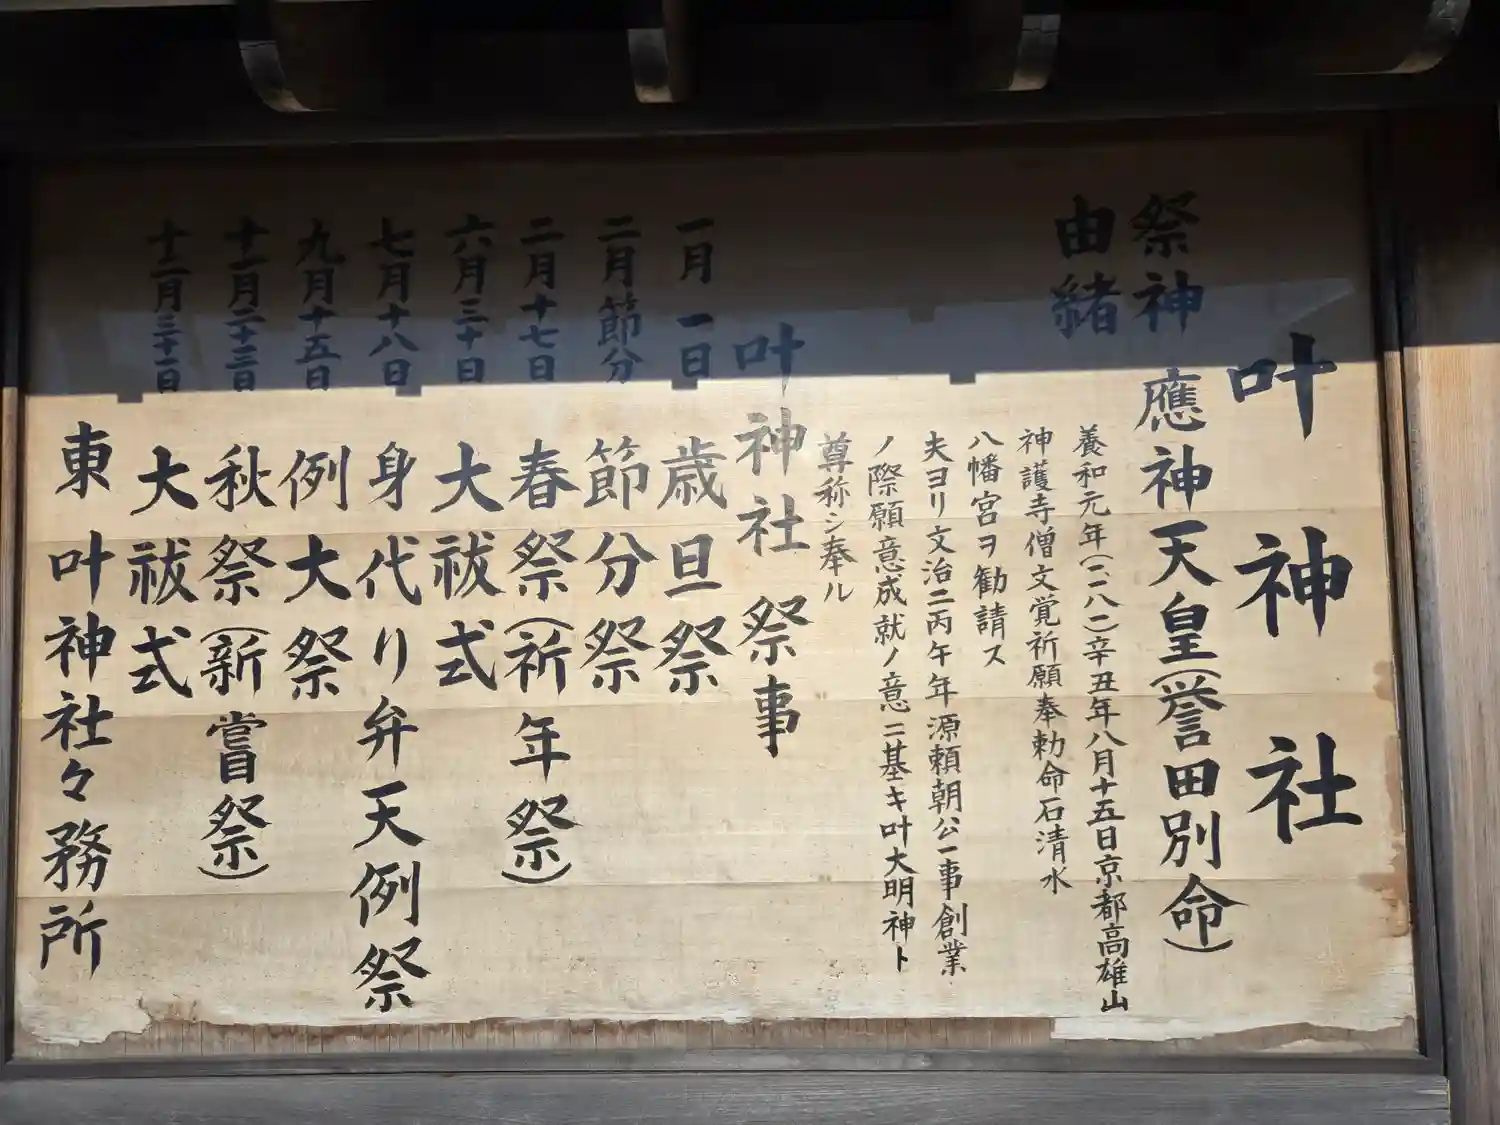 叶神社
祭神 應神天皇(誉田別命)
由緒
養和元年(一一八一)辛丑年八月十五日京都高雄山
神護寺僧文覚祈願奉勅命石清水
八幡宮ヲ勧請ス
夫ヨリ文治二丙午年源頼朝公一事創業
ノ際願意成就ノ意ニ基キ叶大明神ト
尊称シ奉ル
叶神社 祭事
一月一日 歳旦祭
二月節分 節分祭
二月十七日 春祭(祈年祭)
六月三十日 大祓式
七月十八日 身代り弁天例祭
九月十五日 例大祭
十一月二十三日 秋祭(新嘗祭)
十二月三十一日 大祓式
東叶神社々務所